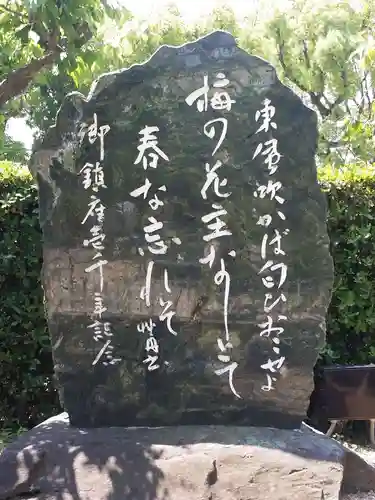 東風吹かば匂ひおこせよ
梅の花主なしとて
春な忘れそ
御鎮座壹千年記念